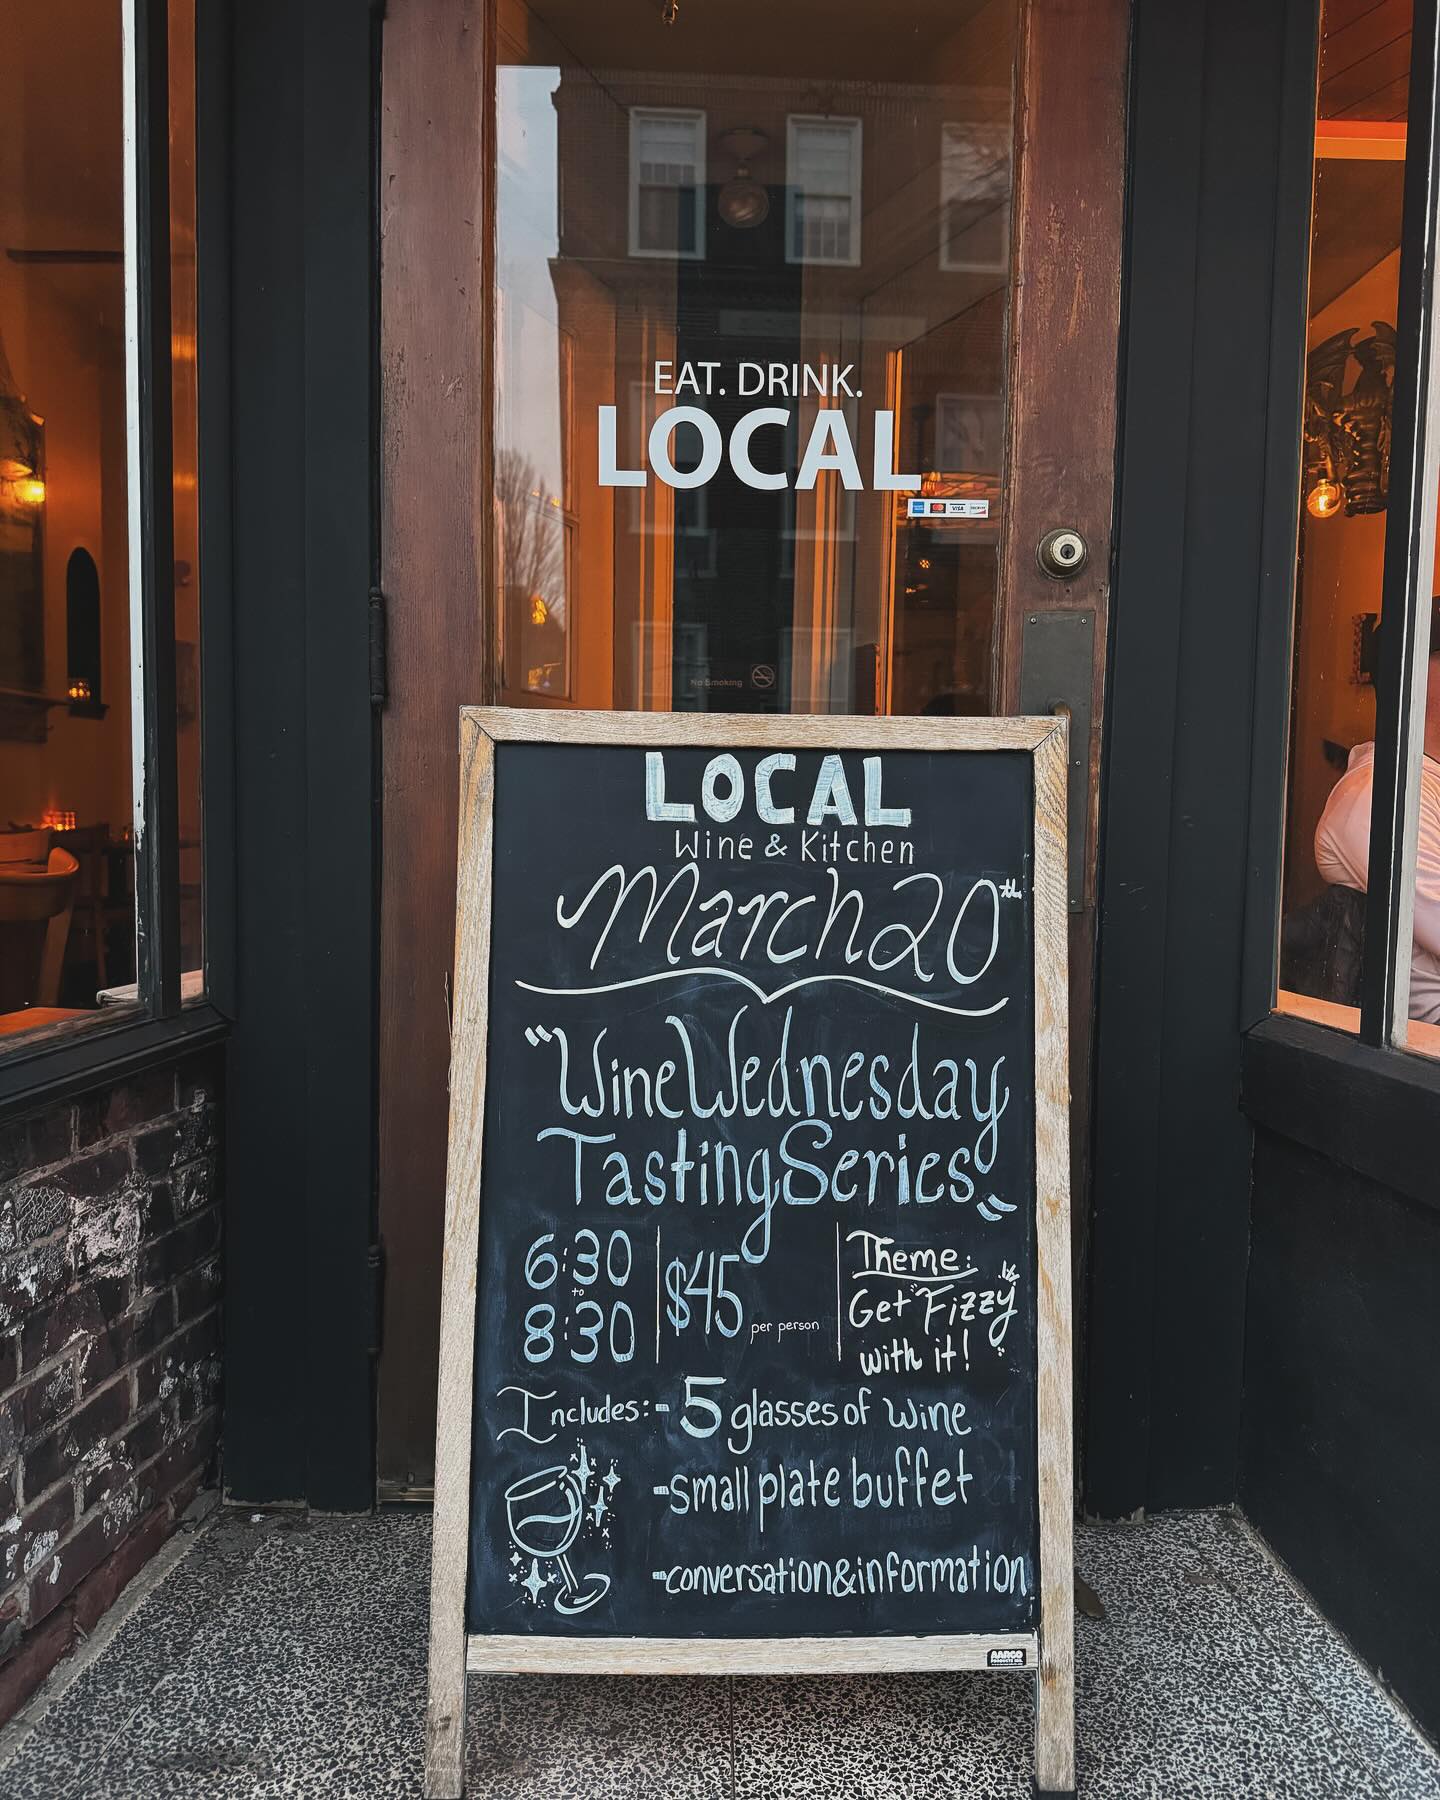 EAT. DRINK.
LOCAL
VISA
No Smoking
LOCAL
Wine & Kitchen
March 20th
"Wine Wednesday
Tasting Series"
6:30
to
8:30
$45
per person
Theme:
Get "Fizzy"
with it!
Includes: - 5 glasses of wine
- small plate buffet
- conversation & information
AARCO
PRODUCTS INC.